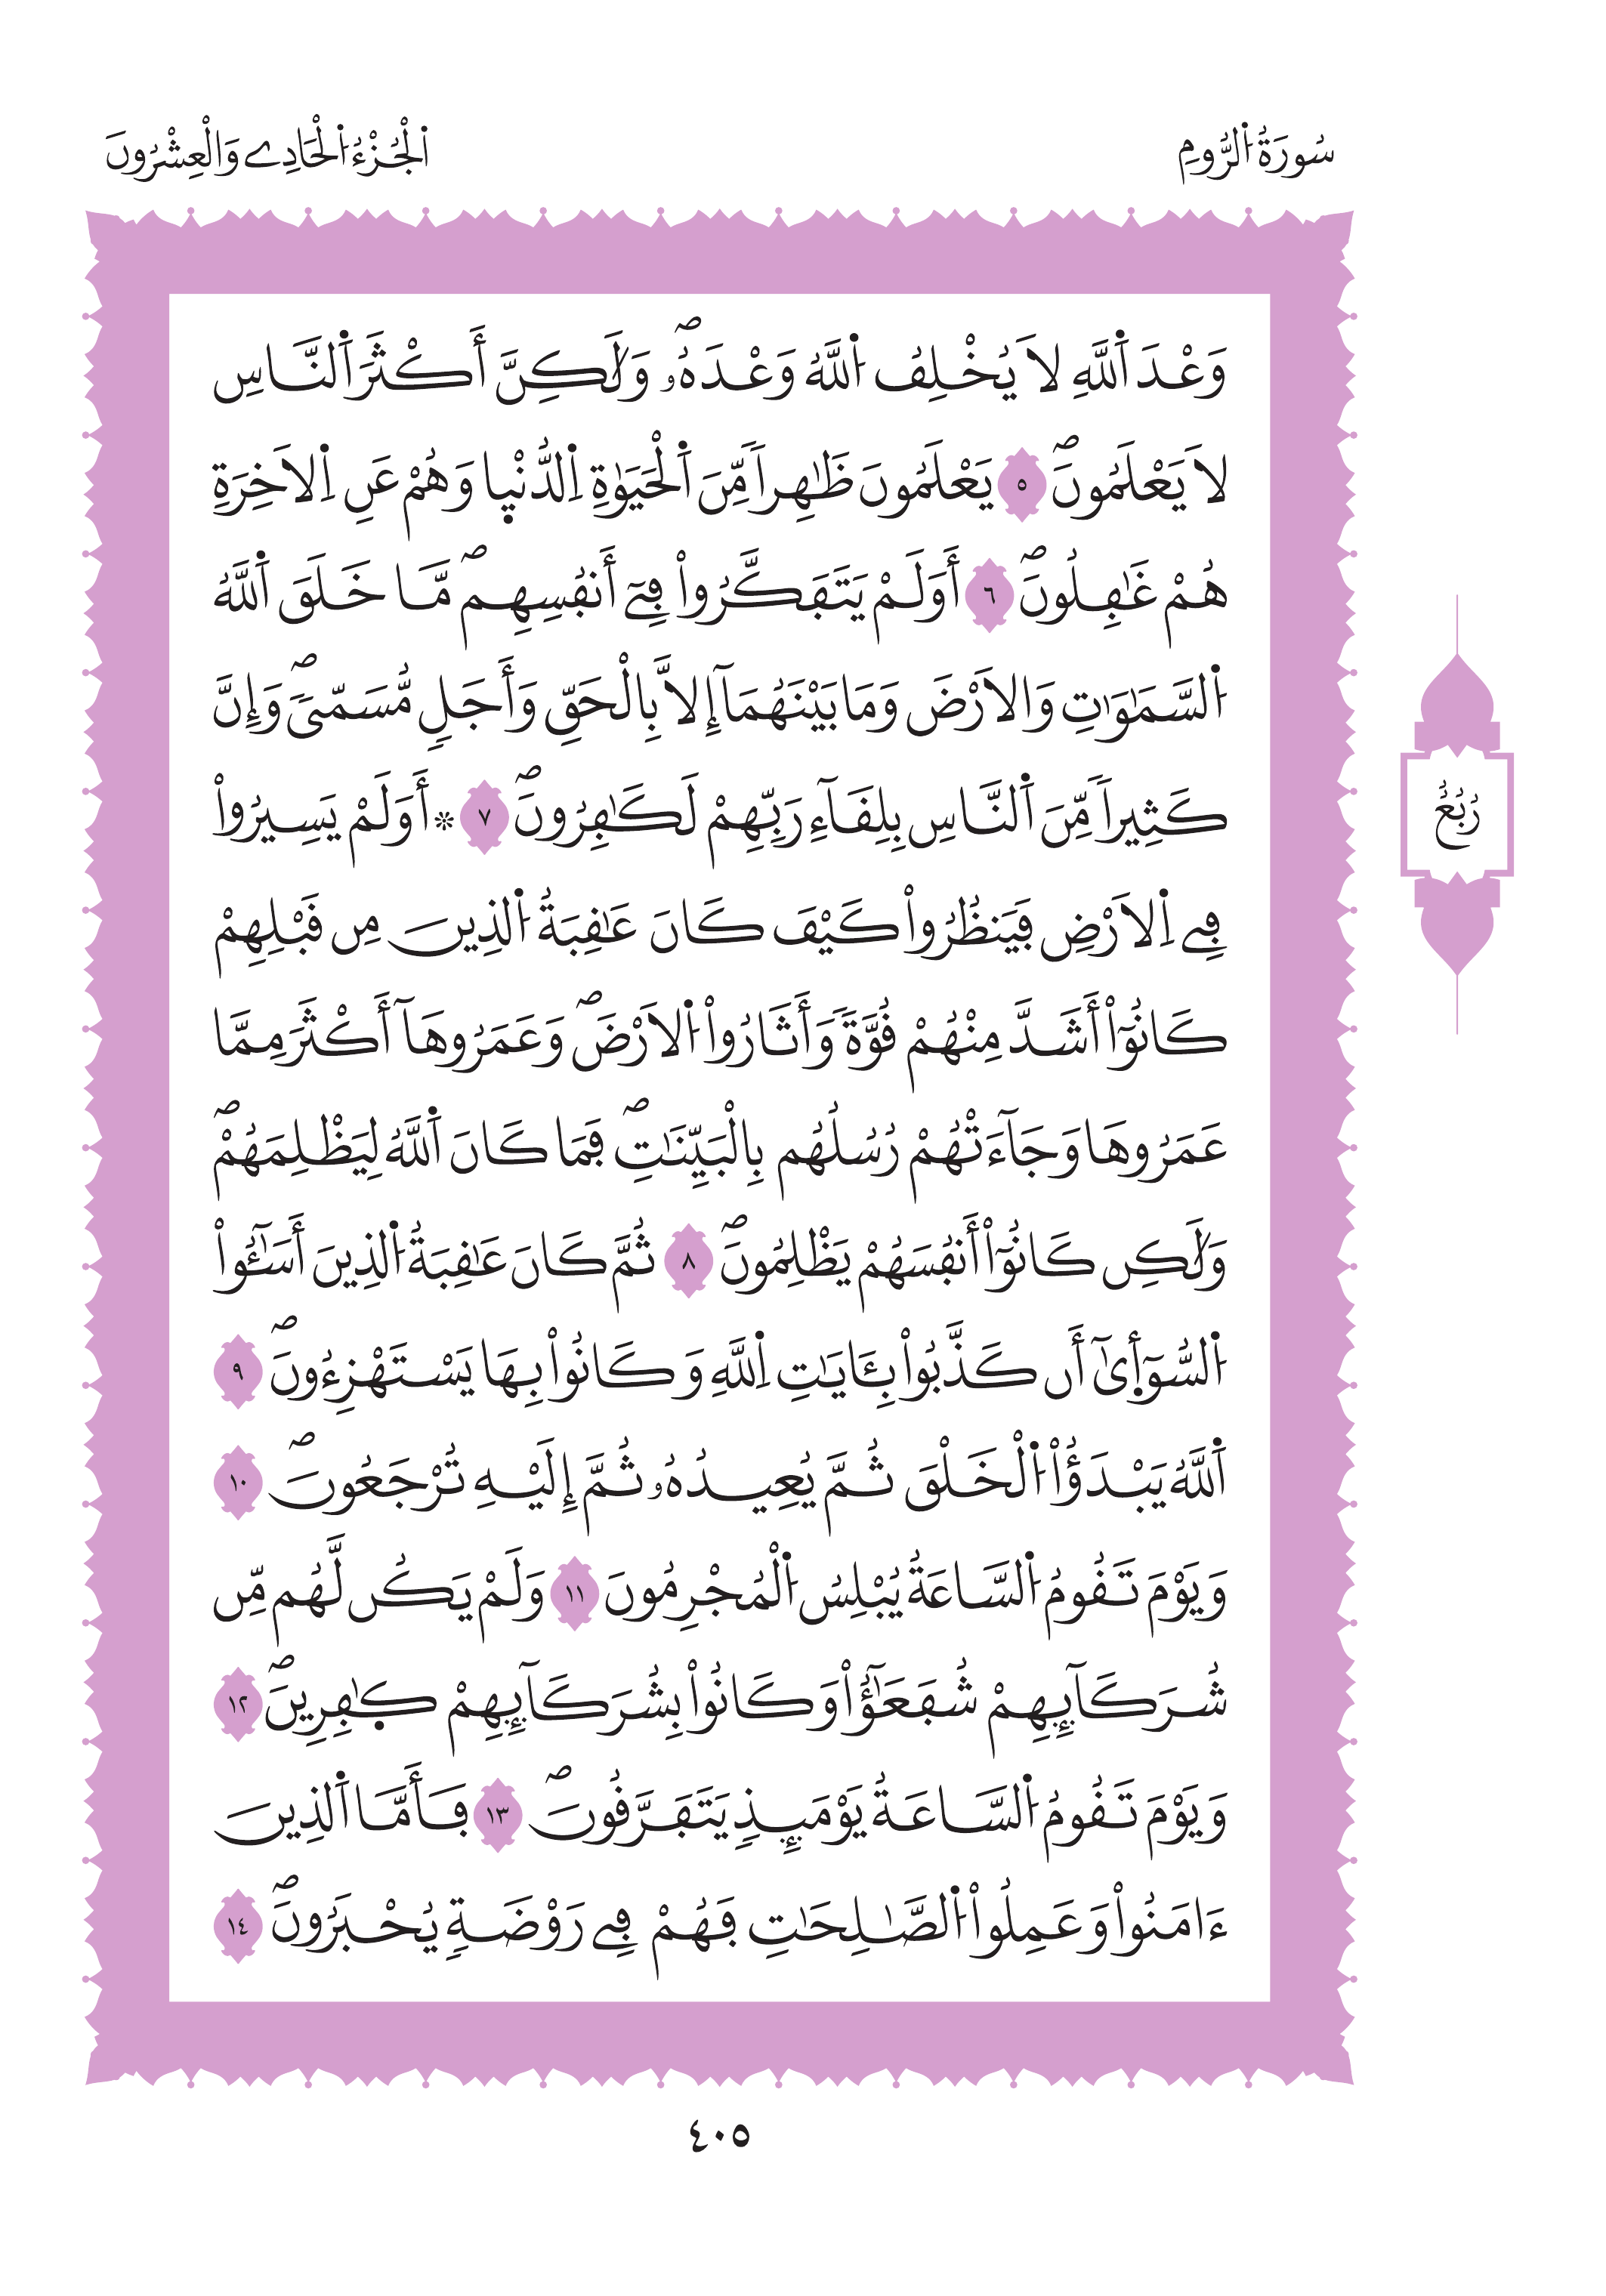 سُورَةُ اُلرُّومِ
اَلْجُزْءُ اُلْحَادِے وَالْعِشْرُونَ
وَعْدَ اَللَّهِ لَا يُخْلِفُ اُللَّهُ وَعْدَهُۥۖ وَلَٰكِنَّ أَكْثَرَ اَلنَّاسِ
لَا يَعْلَمُونَۖ ٥ يَعْلَمُونَ ظَٰهِراٗ مِّنَ اَلْحَيَوٰةِ اِلدُّنْي۪ا وَهُمْ عَنِ اِلَاخِرَةِ
هُمْ غَٰفِلُونَۖ ٦ أَوَلَمْ يَتَفَكَّرُواْ فِےٓ أَنفُسِهِمۖ مَّا خَلَقَ اَللَّهُ
اُلسَّمَٰوَٰتِ وَالَارْضَ وَمَا بَيْنَهُمَآ إِلَّا بِالْحَقِّ وَأَجَلٖ مُّسَمّىٗۖ وَإِنَّ
كَثِيراٗ مِّنَ اَلنَّاسِ بِلِقَآءِ رَبِّهِمْ لَكَٰفِرُونَۖ ٧ ۞ أَوَلَمْ يَسِيرُواْ
فِے اِلَارْضِ فَيَنظُرُواْ كَيْفَ كَانَ عَٰقِبَةُ اُلذِينَ مِن قَبْلِهِمْ
كَانُوٓاْ أَشَدَّ مِنْهُمْ قُوَّةٗ وَأَثَارُواْ اُلَارْضَۖ وَعَمَرُوهَآ أَكْثَرَ مِمَّا
عَمَرُوهَا وَجَآءَتْهُمْ رُسُلُهُم بِالْبَيِّنَٰتِۖ فَمَا كَانَ اَللَّهُ لِيَظْلِمَهُمْۖ
وَلَٰكِن كَانُوٓاْ أَنفُسَهُمْ يَظْلِمُونَۖ ٨ ثُمَّ كَانَ عَٰقِبَةُ اُلذِينَ أَسَٰٓـُٔواْ
اُلسُّوٓأ۪يٰٓ أَن كَذَّبُواْ بِـَٔايَٰتِ اِللَّهِ وَكَانُواْ بِهَا يَسْتَهْزِءُونَۖ ٩
اَللَّهُ يَبْدَؤُاْ اُلْخَلْقَ ثُمَّ يُعِيدُهُۥ ثُمَّ إِلَيْهِ تُرْجَعُونَۖ ١٠
وَيَوْمَ تَقُومُ اُلسَّاعَةُ يُبْلِسُ اُلْمُجْرِمُونَ ١١ وَلَمْ يَكُن لَّهُم مِّن
شُرَكَآئِهِمْ شُفَعَٰٓؤُاْ وَكَانُواْ بِشُرَكَآئِهِمْ كٰ۪فِرِينَۖ ١٢
وَيَوْمَ تَقُومُ اُلسَّاعَةُ يَوْمَئِذٖ يَتَفَرَّقُونَۖ ١٣ فَأَمَّا اَلذِينَ
ءَامَنُواْ وَعَمِلُواْ اُلصَّٰلِحَٰتِ فَهُمْ فِے رَوْضَةٖ يُحْبَرُونَۖ ١٤
رُبُعُ
٤٠٥